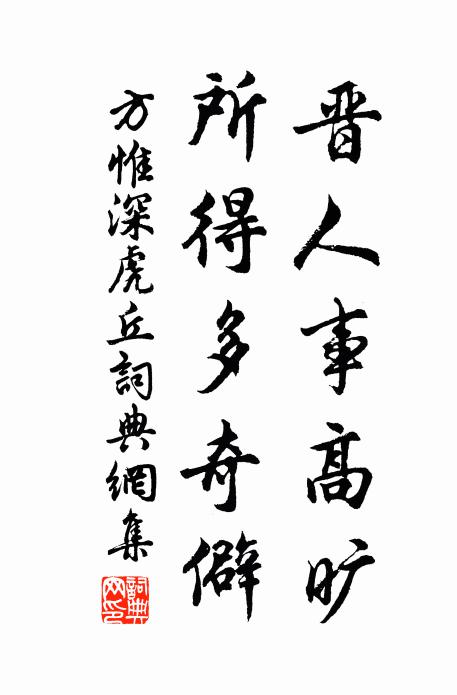 晋人事高旷
所得多奇僻
方惟深虎丘詞典網集
詞典网印